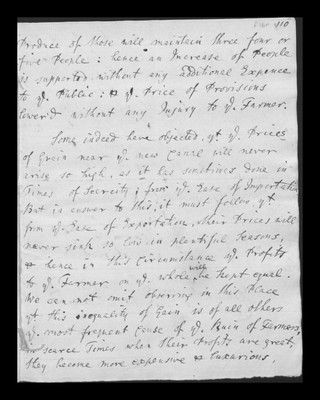 Produce of those will maintain three four or
five People : hence an Increase of People
is supported without any additional Expence
to ye. Public : & ye. Price of Provisions
lower'd without any Injury to ye. Farmer.
Some indeed have objected yt. ye. Prices
of Grain near ye. new Canal will never
arise so high, as it has sometimes done in
Times of Scarcity ; from ye. Ease of Importation
But in answer to this, it must follow, yt
from ye. Ease of Exportation, their Prices will
never sink so low in plentiful Seasons,
& hence in this Circumstance ye. Profits
to ye. Farmer on ye. whole will be kept equal.
We can not omit observing in this Place
yt this inequality of Gain is of all others
ye. most frequent Cause of ye. Ruin of Farmers,
in scarce Times when their Profits are great,
they become more expensive & luxurious.